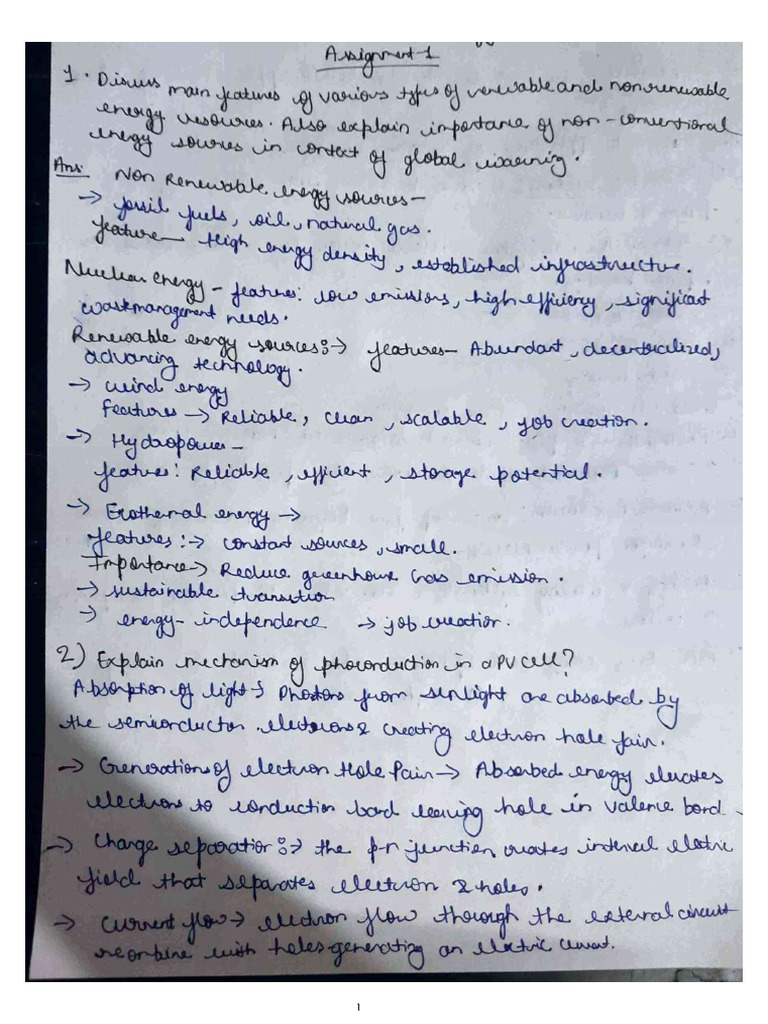 Assignment-1
1. Discuss main features of various types of renewable and nonrenewable
energy resources. Also explain importance of non-conventional
energy sources in context of global warming.
Ans: Non Renewable energy sources-
→ fossil fuels, oil, natural gas.
feature- High energy density, established infrastructure.
Nuclear energy - features: low emissions, high efficiency, significant
wastmanagement needs.
Renewable energy sources:→ features- Abundant, decentrialized,
advancing technology.
→ wind energy
features → Reliable, clean, scalable, job creation.
→ Hydropower-
features: Reliable, efficient, storage potential.
→ Geothermal energy →
features:→ constant sources, small.
Importance→ Reduce greenhouse Gas emission.
→ sustainable transition
→ energy-independence → job creation.
2) Explain mechanism of photoconduction in a PV cell?
Absorption of light→ Photons from sunlight are absorbed by
the semiconductor electrons & creating electron hole pair.
→ Generations of electron Hole Pair → Absorbed energy elevates
electrons to conduction band leaving hole in valence band.
→ Charge separation:→ the p-n junction creates internal eletric
field that separates electron & holes.
→ current flow→ electron flow through the external circuit
recombine with holes generating an eletric current.
1